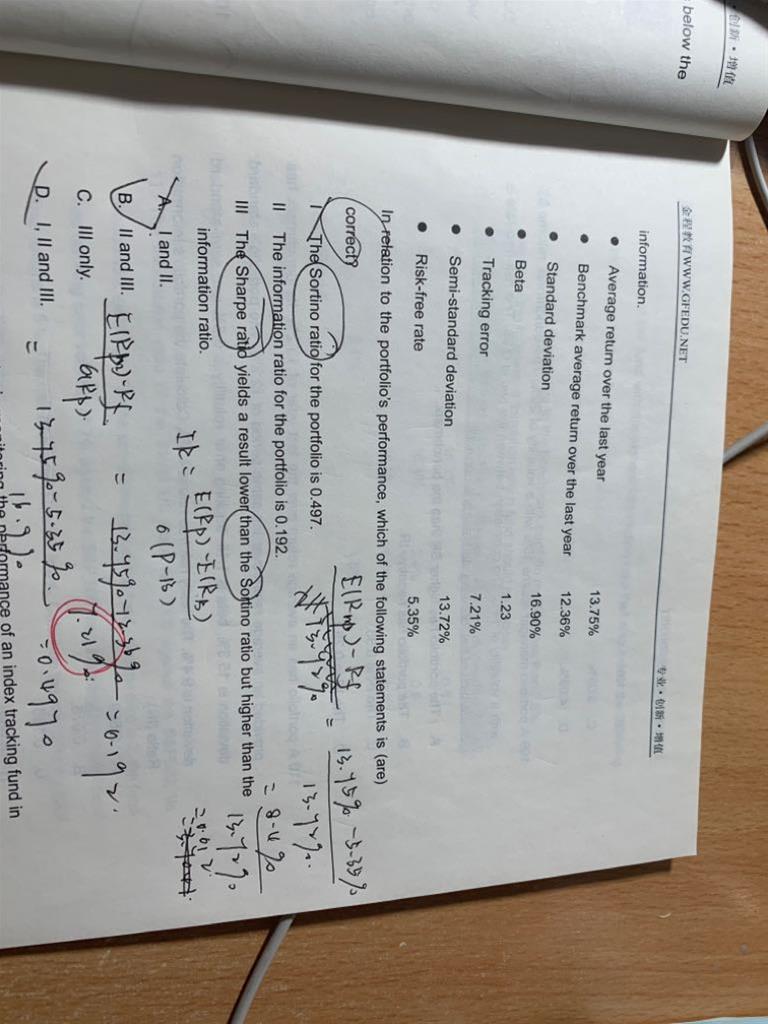 ·创新·增值
s below the
金程教育WWW.GFEDU.NET 专业·创新·增值
information.
● Average return over the last year 13.75%
● Benchmark average return over the last year 12.36%
● Standard deviation 16.90%
● Beta 1.23
● Tracking error 7.21%
● Semi-standard deviation 13.72%
● Risk-free rate 5.35%
In relation to the portfolio's performance, which of the following statements is (are)
correct?
I The Sortino ratio for the portfolio is 0.497.
II The information ratio for the portfolio is 0.192.
III The Sharpe ratio yields a result lower than the Sortino ratio but higher than the
information ratio.
A. I and II.
B. II and III.
C. III only.
D. I, II and III.
E(Rp) - Rf
13.72%
= 13.75% - 5.35%
13.72%
= 8.4%
13.72%
= 0.612
IR = E(Rp) - E(RB)
σ(P-B)
= 13.75% - 12.36%
7.21%
= 0.192.
- Rf
σ(Rp)
= 13.75% - 5.35%
16.9%
= 0.4970
monitoring the performance of an index tracking fund in